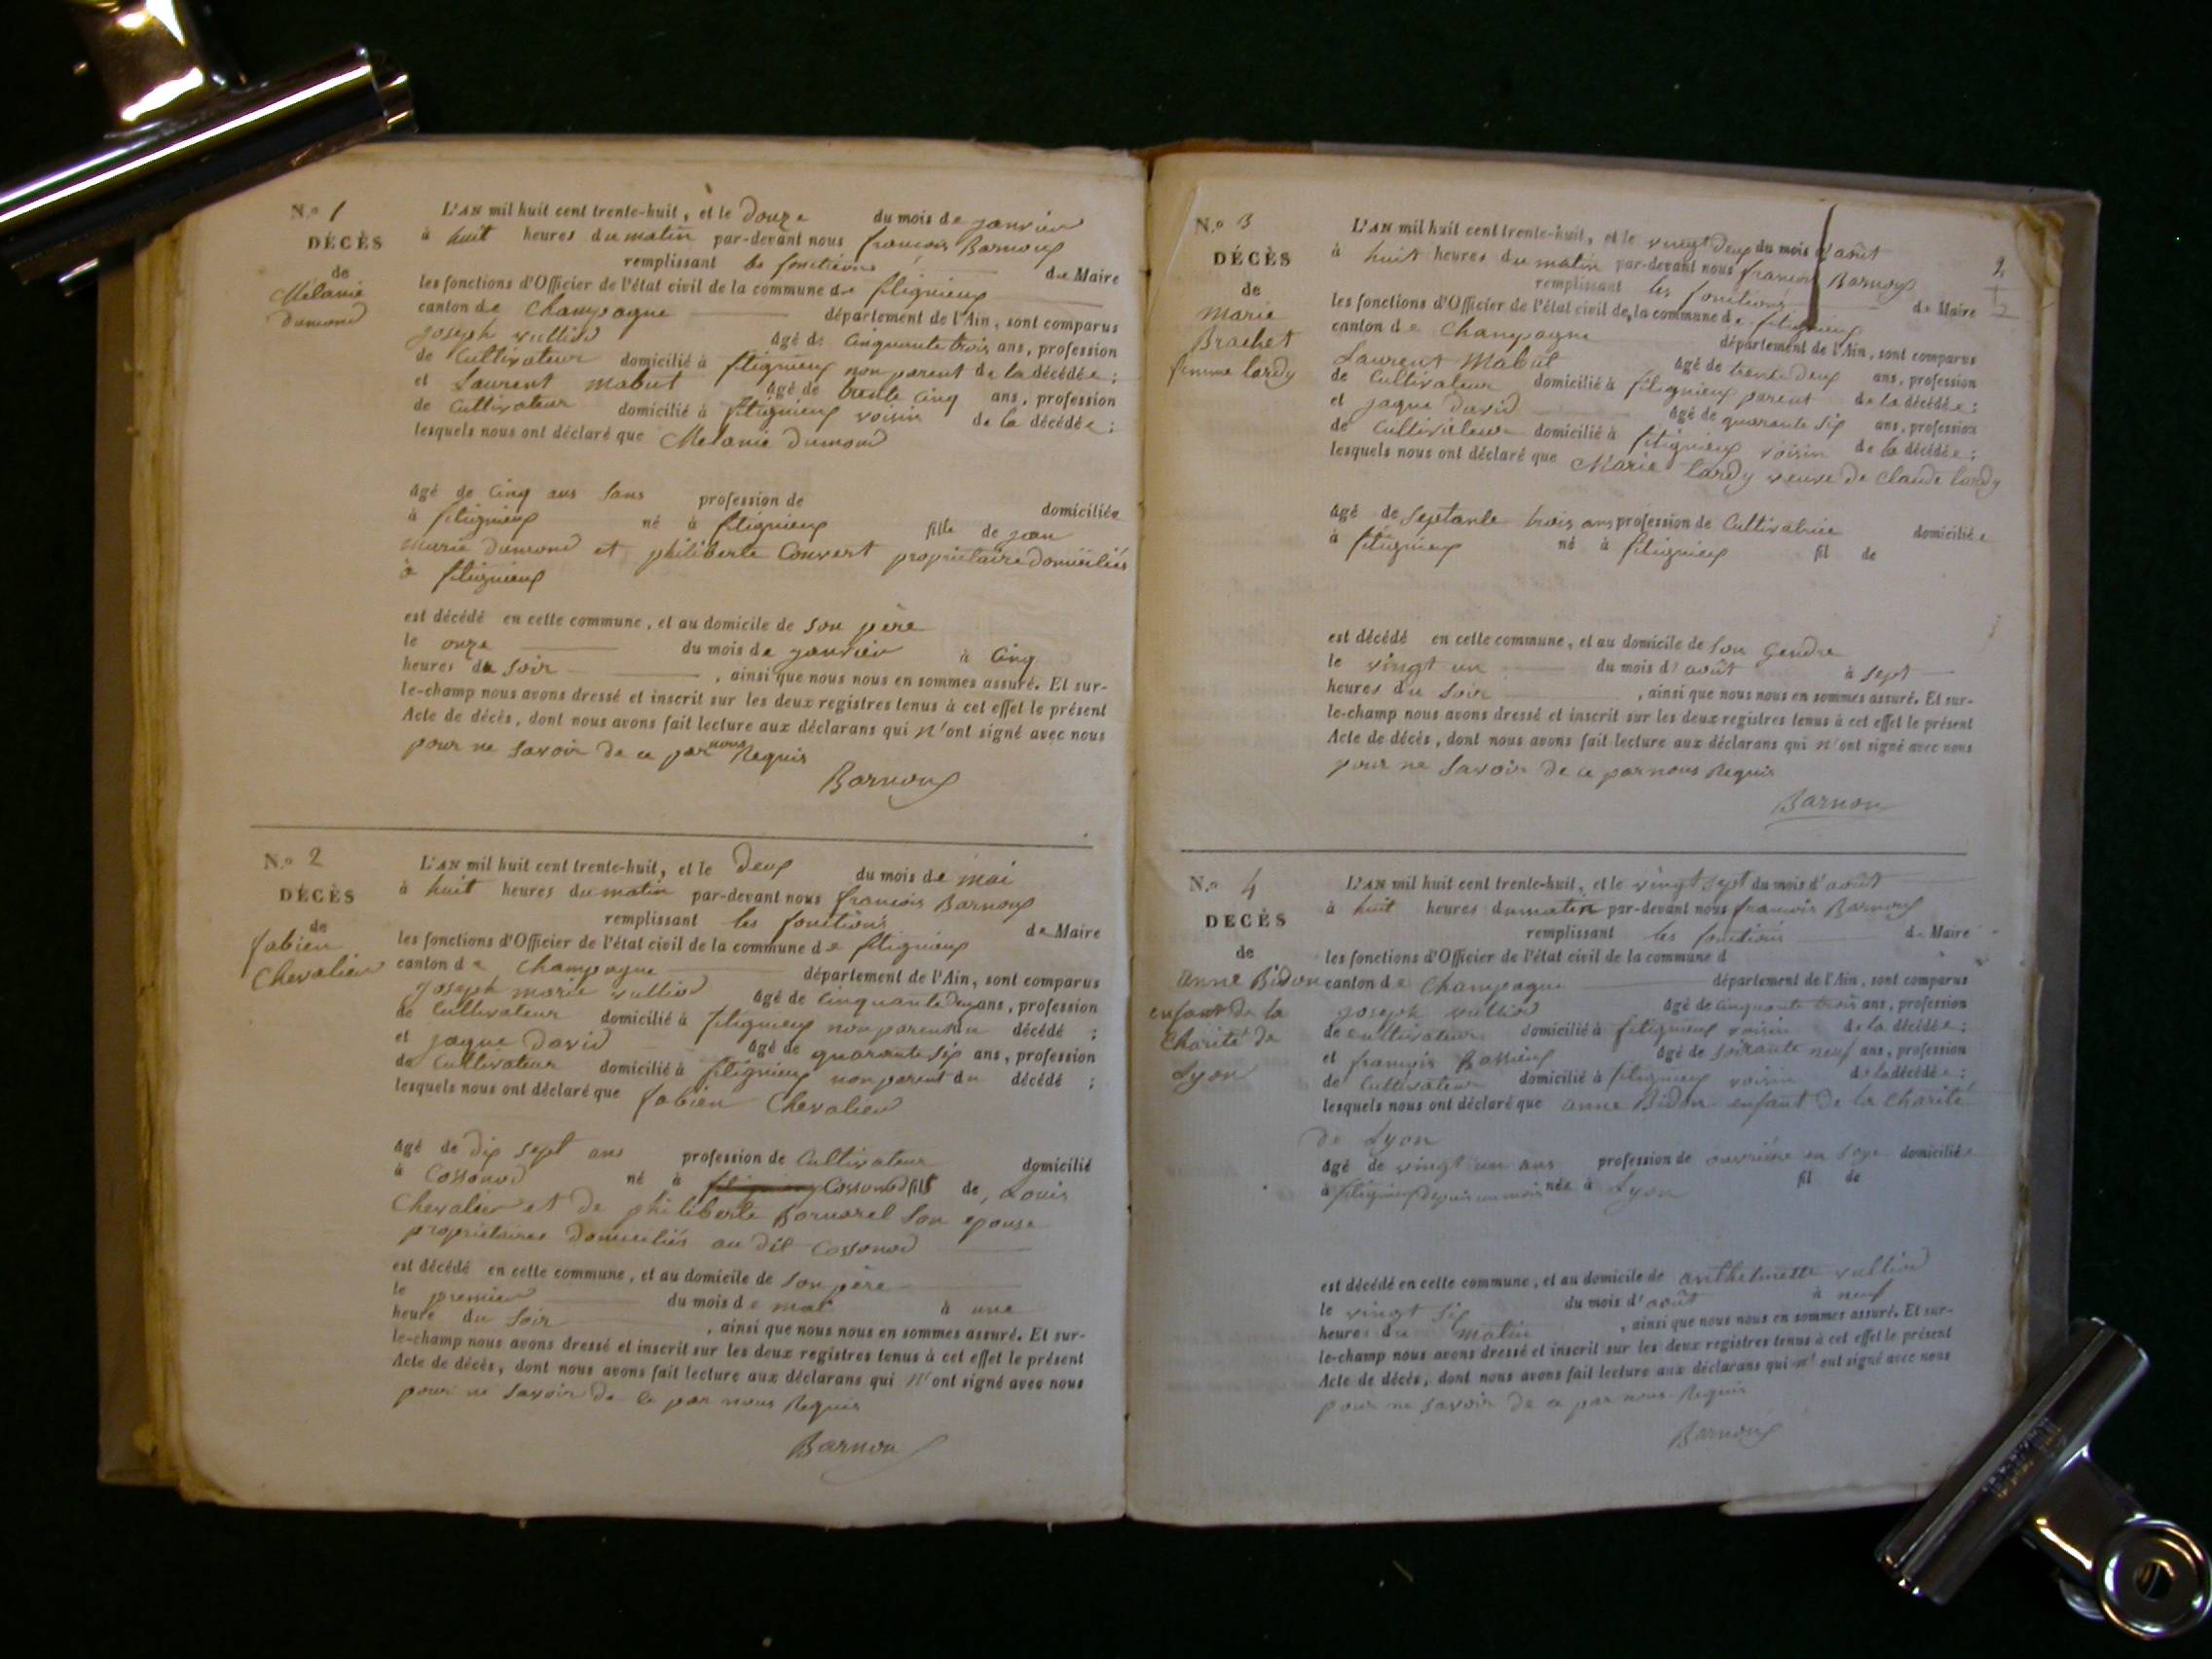 N.o 1
DÉCÈS
de
Mélanie
Dumond
L'AN mil huit cent trente-huit, et le douze du mois de janvier
à huit heures du matin par-devant nous françois Barnoux
remplissant les fonctions de Maire
les fonctions d'Officier de l'état civil de la commune de fitignieux
canton de Champagne département de l'Ain, sont comparus
joseph vulliod âgé de Cinquante trois ans, profession
de Cultivateur domicilié à fitignieux non parent de la décédée;
et Laurent Mabut âgé de trente cinq ans, profession
de Cultivateur domicilié à fitignieux voisin de la décédée;
lesquels nous ont déclaré que Mélanie Dumond
âgé de Cinq ans Sans profession de domiciliée
à fitignieux né à fitignieux fille de jean
marie Dumond et philiberte Convert propriétaire domiciliés
à fitignieux
est décédé en cette commune, et au domicile de son père
le onze du mois de janvier à Cinq
heures du Soir, ainsi que nous nous en sommes assuré. Et sur-
le-champ nous avons dressé et inscrit sur les deux registres tenus à cet effet le présent
Acte de décès, dont nous avons fait lecture aux déclarans qui n'ont signé avec nous
pour ne savoir de ce par nous Requis
Barnoux
N.o 2
DÉCÈS
de
fabien
Chevalier
L'AN mil huit cent trente-huit, et le Deux du mois de mai
à huit heures du matin par-devant nous francois Barnoux
remplissant les fonctions de Maire
les fonctions d'Officier de l'état civil de la commune de fitignieux
canton de Champagne département de l'Ain, sont comparus
joseph marie vulliod âgé de Cinquante deux ans, profession
de Cultivateur domicilié à fitignieux non parent du décédé;
et jaque david âgé de quarante six ans, profession
de Cultivateur domicilié à fitignieux non parent du décédé;
lesquels nous ont déclaré que fabien Chevalier
âgé de dix sept ans profession de Cultivateur domicilié
à Cossonod né à Cossonod fils de Louis
Chevalier et de philiberte Bornarel Son epouse
propriétaires domiciliés au dit Cossonod
est décédé en cette commune, et au domicile de son père
le premier du mois de mai à une
heure du soir, ainsi que nous nous en sommes assuré. Et sur-
le-champ nous avons dressé et inscrit sur les deux registres tenus à cet effet le présent
Acte de décès, dont nous avons fait lecture aux déclarans qui n'ont signé avec nous
pour ne savoir de ce par nous Requis
Barnoux
N.o 3
DÉCÈS
de
Marie
Brachet
femme lardy
L'AN mil huit cent trente-huit, et le vingt deux du mois d'août
à huit heures du matin par-devant nous francois Barnoux
remplissant les fonctions de Maire
les fonctions d'Officier de l'état civil de la commune de fitignieux
canton de Champagne département de l'Ain, sont comparus
Laurent Mabut âgé de trente deux ans, profession
de Cultivateur domicilié à fitignieux parent de la décédée;
et jaque david âgé de quarante six ans, profession
de Cultivateur domicilié à fitignieux voisin de la décédée;
lesquels nous ont déclaré que Marie lardy veuve de Claude lardy
âgé de Septante trois ans profession de Cultivatrice domiciliée
à fitignieux né à fitignieux fil de
est décédé en cette commune, et au domicile de Son Gendre
le vingt un du mois d'août à sept
heures du Soir, ainsi que nous nous en sommes assuré. Et sur-
le-champ nous avons dressé et inscrit sur les deux registres tenus à cet effet le présent
Acte de décès, dont nous avons fait lecture aux déclarans qui n'ont signé avec nous
pour ne Savoir de ce par nous Requis
Barnoux
N.o 4
DECÈS
de
anne Bidon
enfant de la
Charité de
Lyon
L'AN mil huit cent trente-huit, et le vingt sept du mois d'août
à huit heures du matin par-devant nous francois Barnoux
remplissant les fonctions de Maire
les fonctions d'Officier de l'état civil de la commune d
canton de Champagne département de l'Ain, sont comparus
joseph vulliod âgé de cinquante trois ans, profession
de cultivateur domicilié à fitignieux voisin de la décédée;
et françois Bassieux âgé de soixante neuf ans, profession
de Cultivateur domicilié à fitignieux voisin de la décédée;
lesquels nous ont déclaré que anne Bidon enfant de la Charité
de Lyon
âgé de vingt un ans profession de ouvrière en soye domiciliée
à fitignieux depuis un mois née à Lyon fil de
est décédé en cette commune, et au domicile de anthelmette vulliod
le vingt six du mois d'août à neuf
heures du matin, ainsi que nous nous en sommes assuré. Et sur-
le-champ nous avons dressé et inscrit sur les deux registres tenus à cet effet le présent
Acte de décès, dont nous avons fait lecture aux déclarans qui n'ont signé avec nous
pour ne savoir de ce par nous Requis
Barnoux